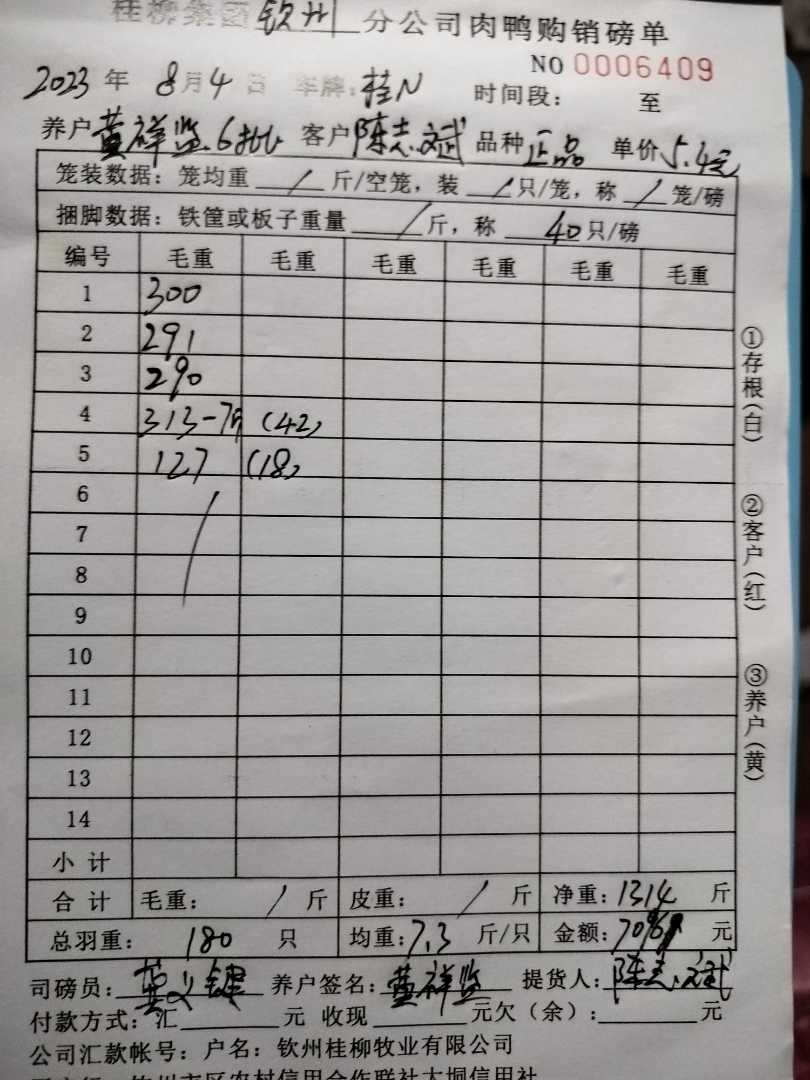 桂柳集团钦州分公司肉鸭购销磅单
NO 0006409
2023年 8月4日 车牌:桂N 时间段: 至
养户黄祥监6批 客户陈志斌 品种正品 单价5.4元
笼装数据:笼均重 / 斤/空笼,装 / 只/笼,称 / 笼/磅
捆脚数据:铁筐或板子重量 / 斤,称 40只/磅
编号 毛重 毛重 毛重 毛重 毛重 毛重
1 300
2 291
3 290
4 313-7斤 (42)
5 127 (18)
6 /
7
8
9
10
11
12
13
14
小计
合计 毛重: / 斤 皮重: / 斤 净重:1314 斤
总羽重: 180 只 均重:7.3 斤/只 金额: 元
司磅员: 养户签名:黄祥监 提货人:陈志斌
付款方式:汇 元 收现 元欠(余): 元
公司汇款帐号:户名:钦州桂柳牧业有限公司
①存根(白)
②客户(红)
③养户(黄)